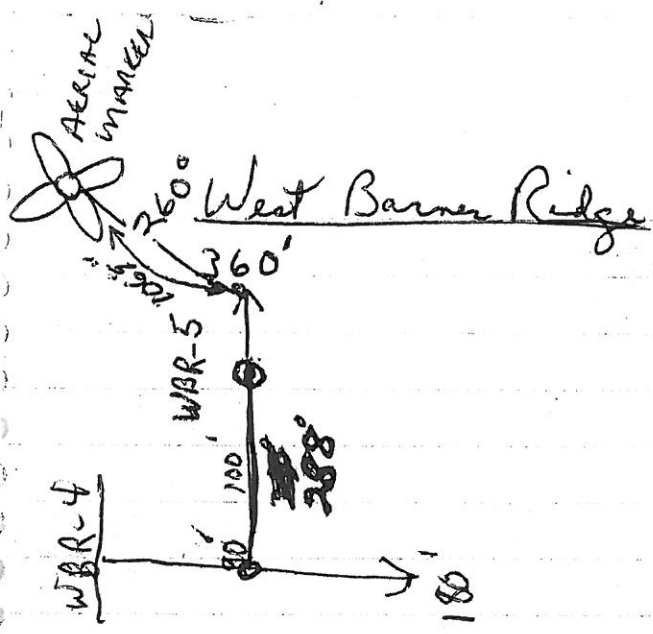 AERIAL
MARKER
260°
West Barner Ridge
360'
WBR-5
100'
288°
WBR-4
90'
180'